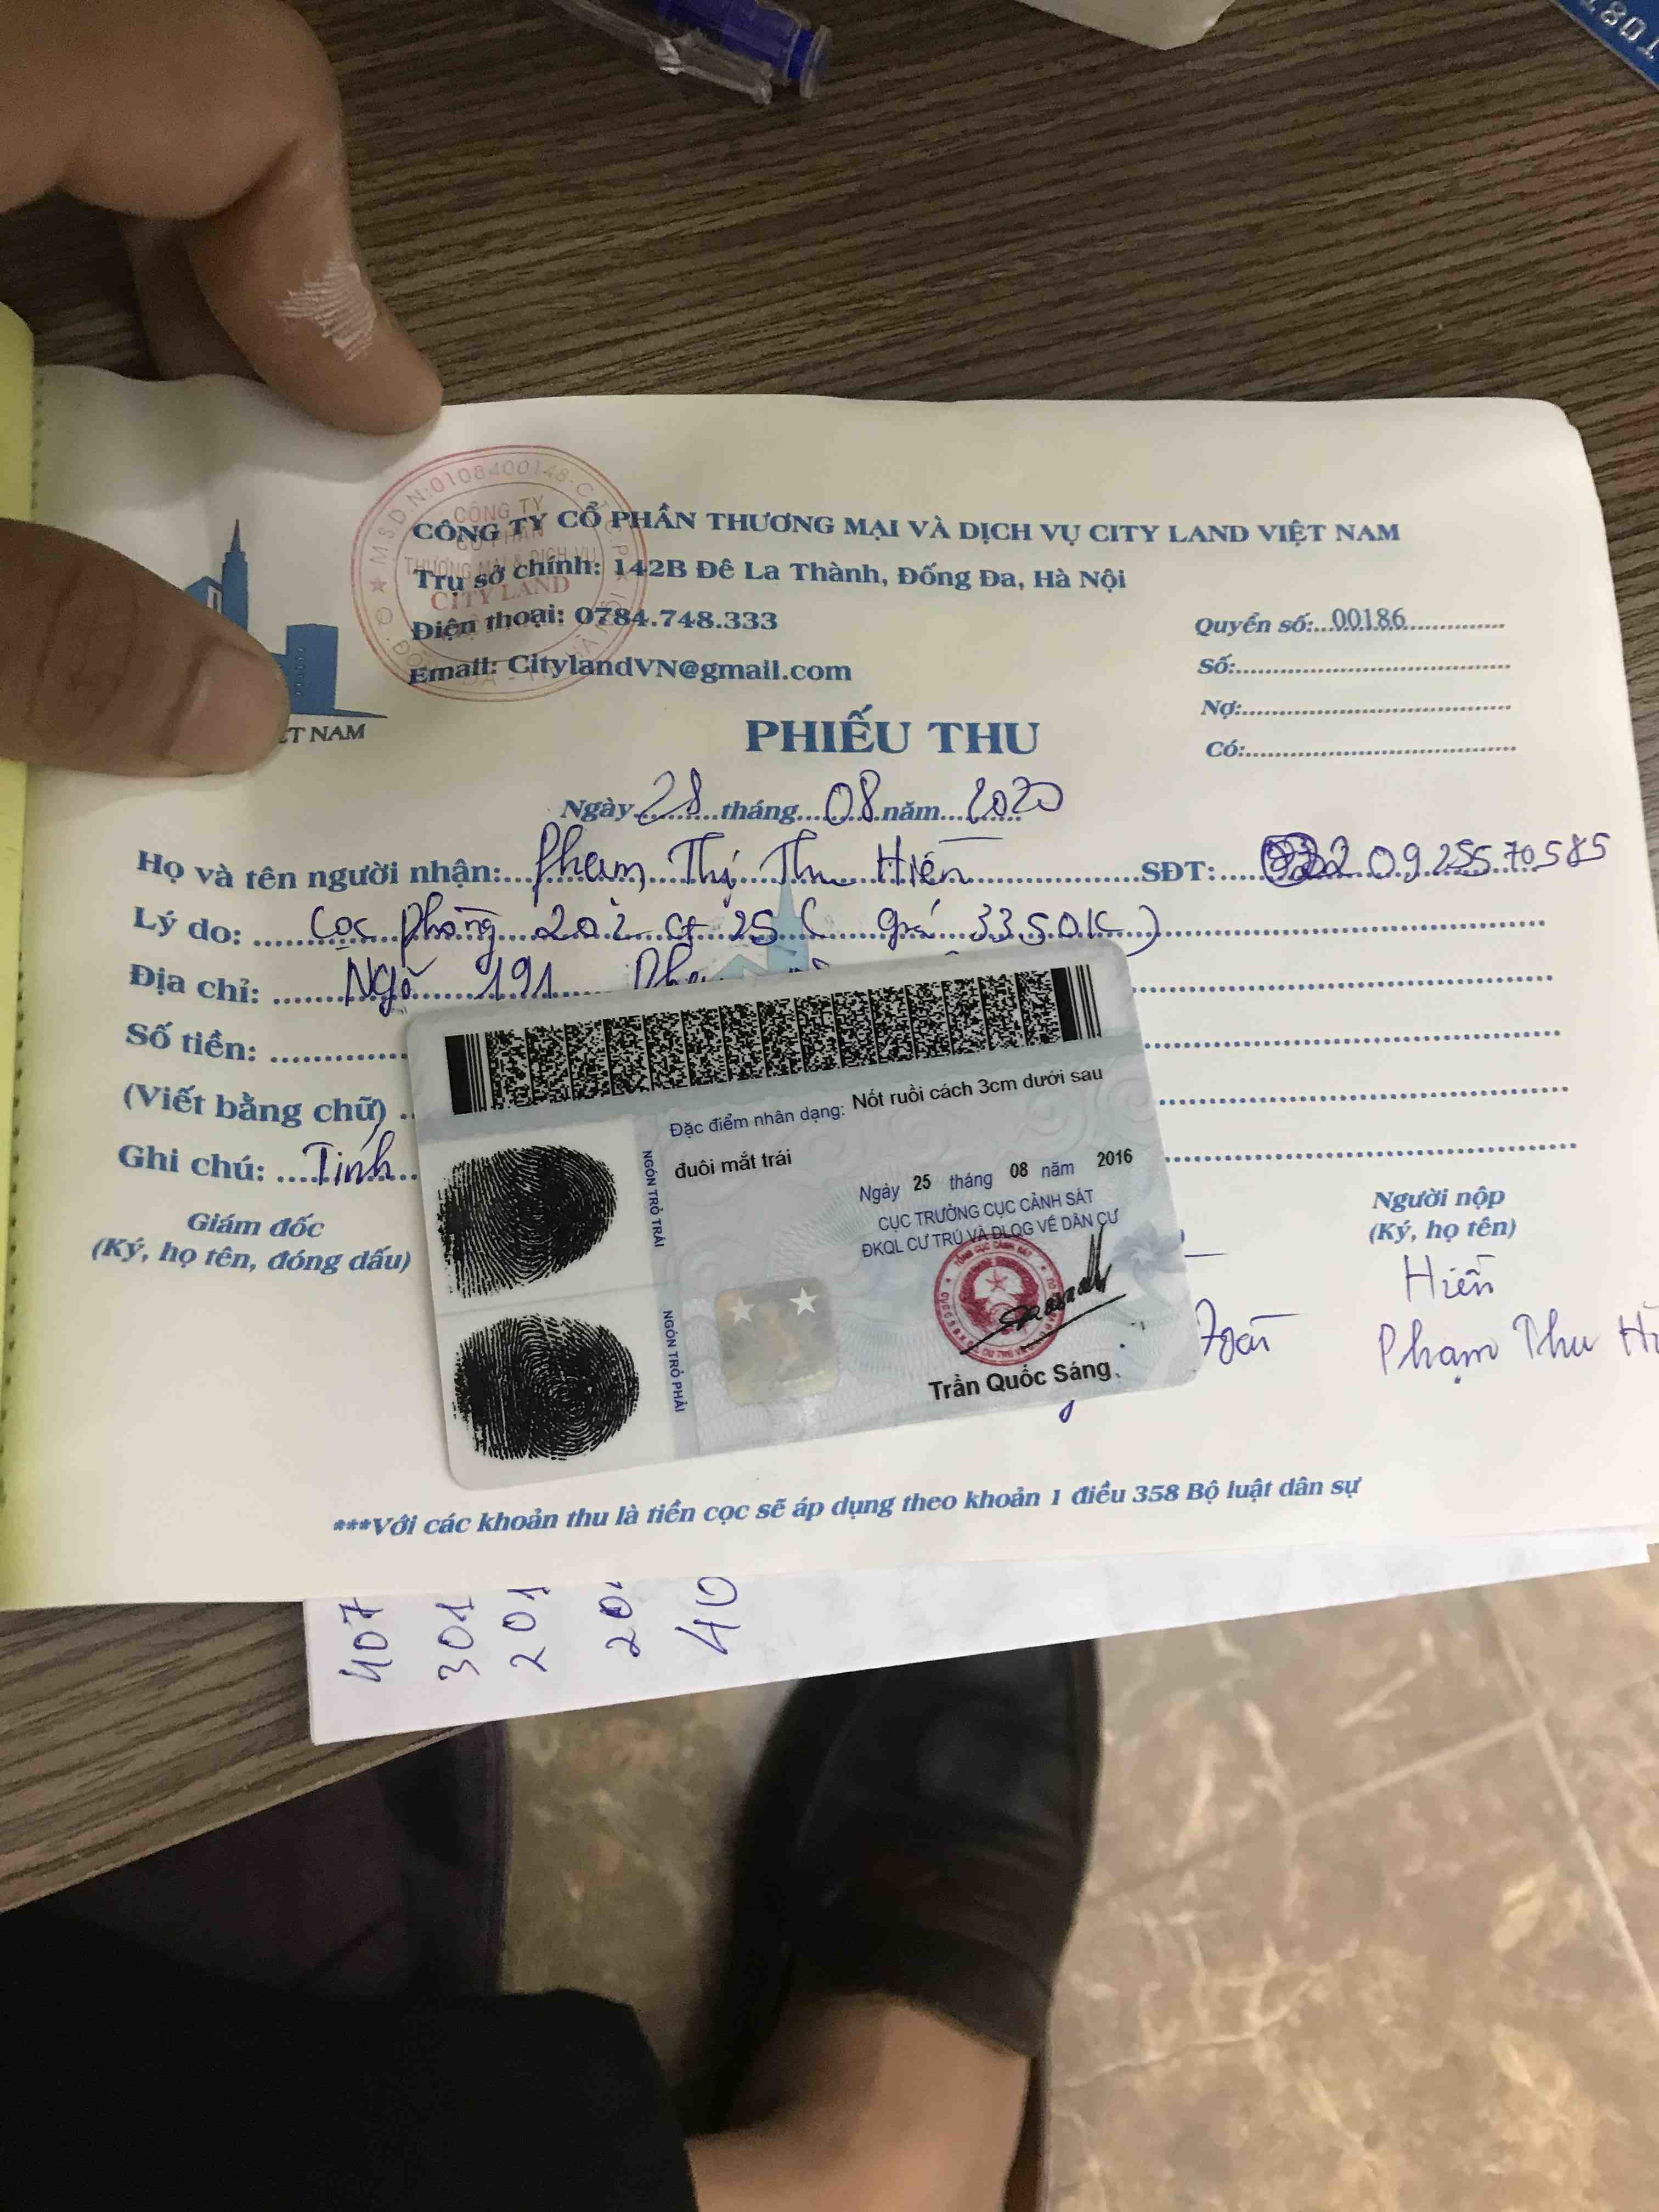 CÔNG TY CỔ PHẦN THƯƠNG MẠI VÀ DỊCH VỤ CITY LAND VIỆT NAM
Trụ sở chính: 142B Đê La Thành, Đống Đa, Hà Nội
Điện thoại: 0784.748.333
Email: CitylandVN@gmail.com
M.S.D.N:0108400148-C.T.C.P
CÔNG TY
CỔ PHẦN
THƯƠNG MẠI & DỊCH VỤ
CITY LAND
ỆT NAM
Quyển số:...00186
Số:
Nợ:
Có:
PHIẾU THU
Ngày 28 tháng 08 năm 2020
Họ và tên người nhận: Phạm Thị Thu Hiền SĐT: 0925570585
Lý do: Cọc phòng 202 25 ( giá 3350K)
Địa chỉ: Ngõ 191
Số tiền:
(Viết bằng chữ)
Ghi chú: Tính
Giám đốc
(Ký, họ tên, đóng dấu)
Người nộp
(Ký, họ tên)
Hiền
Phạm Thu
Đặc điểm nhân dạng: Nốt ruồi cách 3cm dưới sau
đuôi mắt trái
Ngày 25 tháng 08 năm 2016
CỤC TRƯỞNG CỤC CẢNH SÁT
ĐKQL CƯ TRÚ VÀ DLQG VỀ DÂN CƯ
NGÓN TRỎ TRÁI
NGÓN TRỎ PHẢI
Trần Quốc Sáng
***Với các khoản thu là tiền cọc sẽ áp dụng theo khoản 1 điều 358 Bộ luật dân sự
407
301
201
40